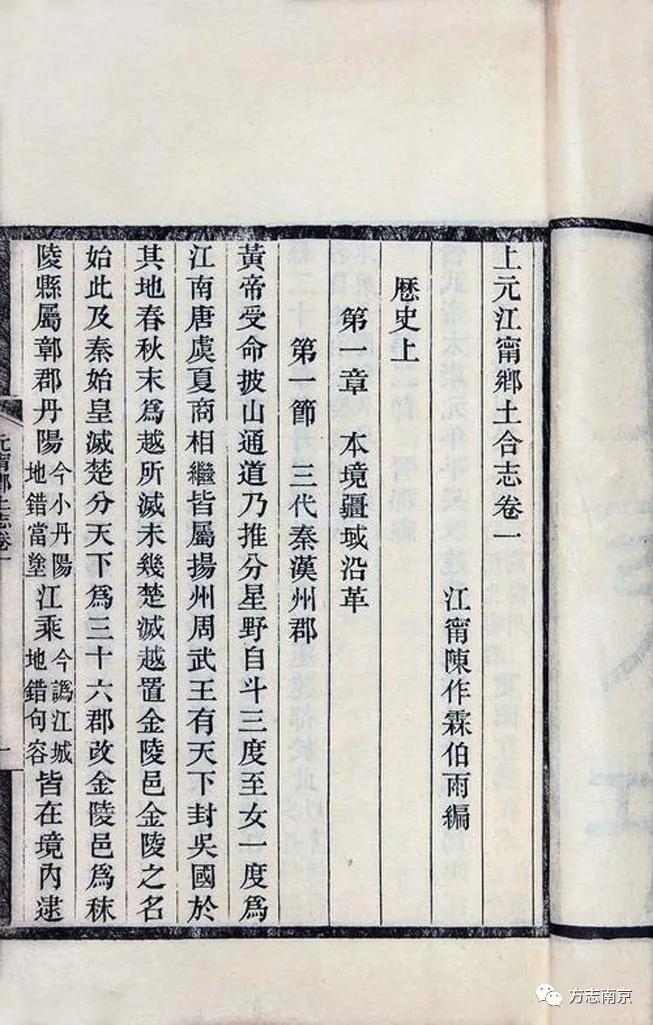 上元江甯鄉土合志卷一
江甯陳作霖伯雨編
歷史上
第一章 本境疆域沿革
第一節 三代秦漢州郡
黃帝受命披山通道乃推分星野自斗三度至女一度爲
江南唐虞夏商相繼皆屬揚州周武王有天下封吳國於
其地春秋末爲越所滅未幾楚滅越置金陵邑金陵之名
始此及秦始皇滅楚分天下爲三十六郡改金陵邑爲秣
陵縣屬鄣郡丹陽今小丹陽地錯當塗江乘今譌江城地錯句容皆在境內逮
元甯鄉土志卷一
一
方志南京